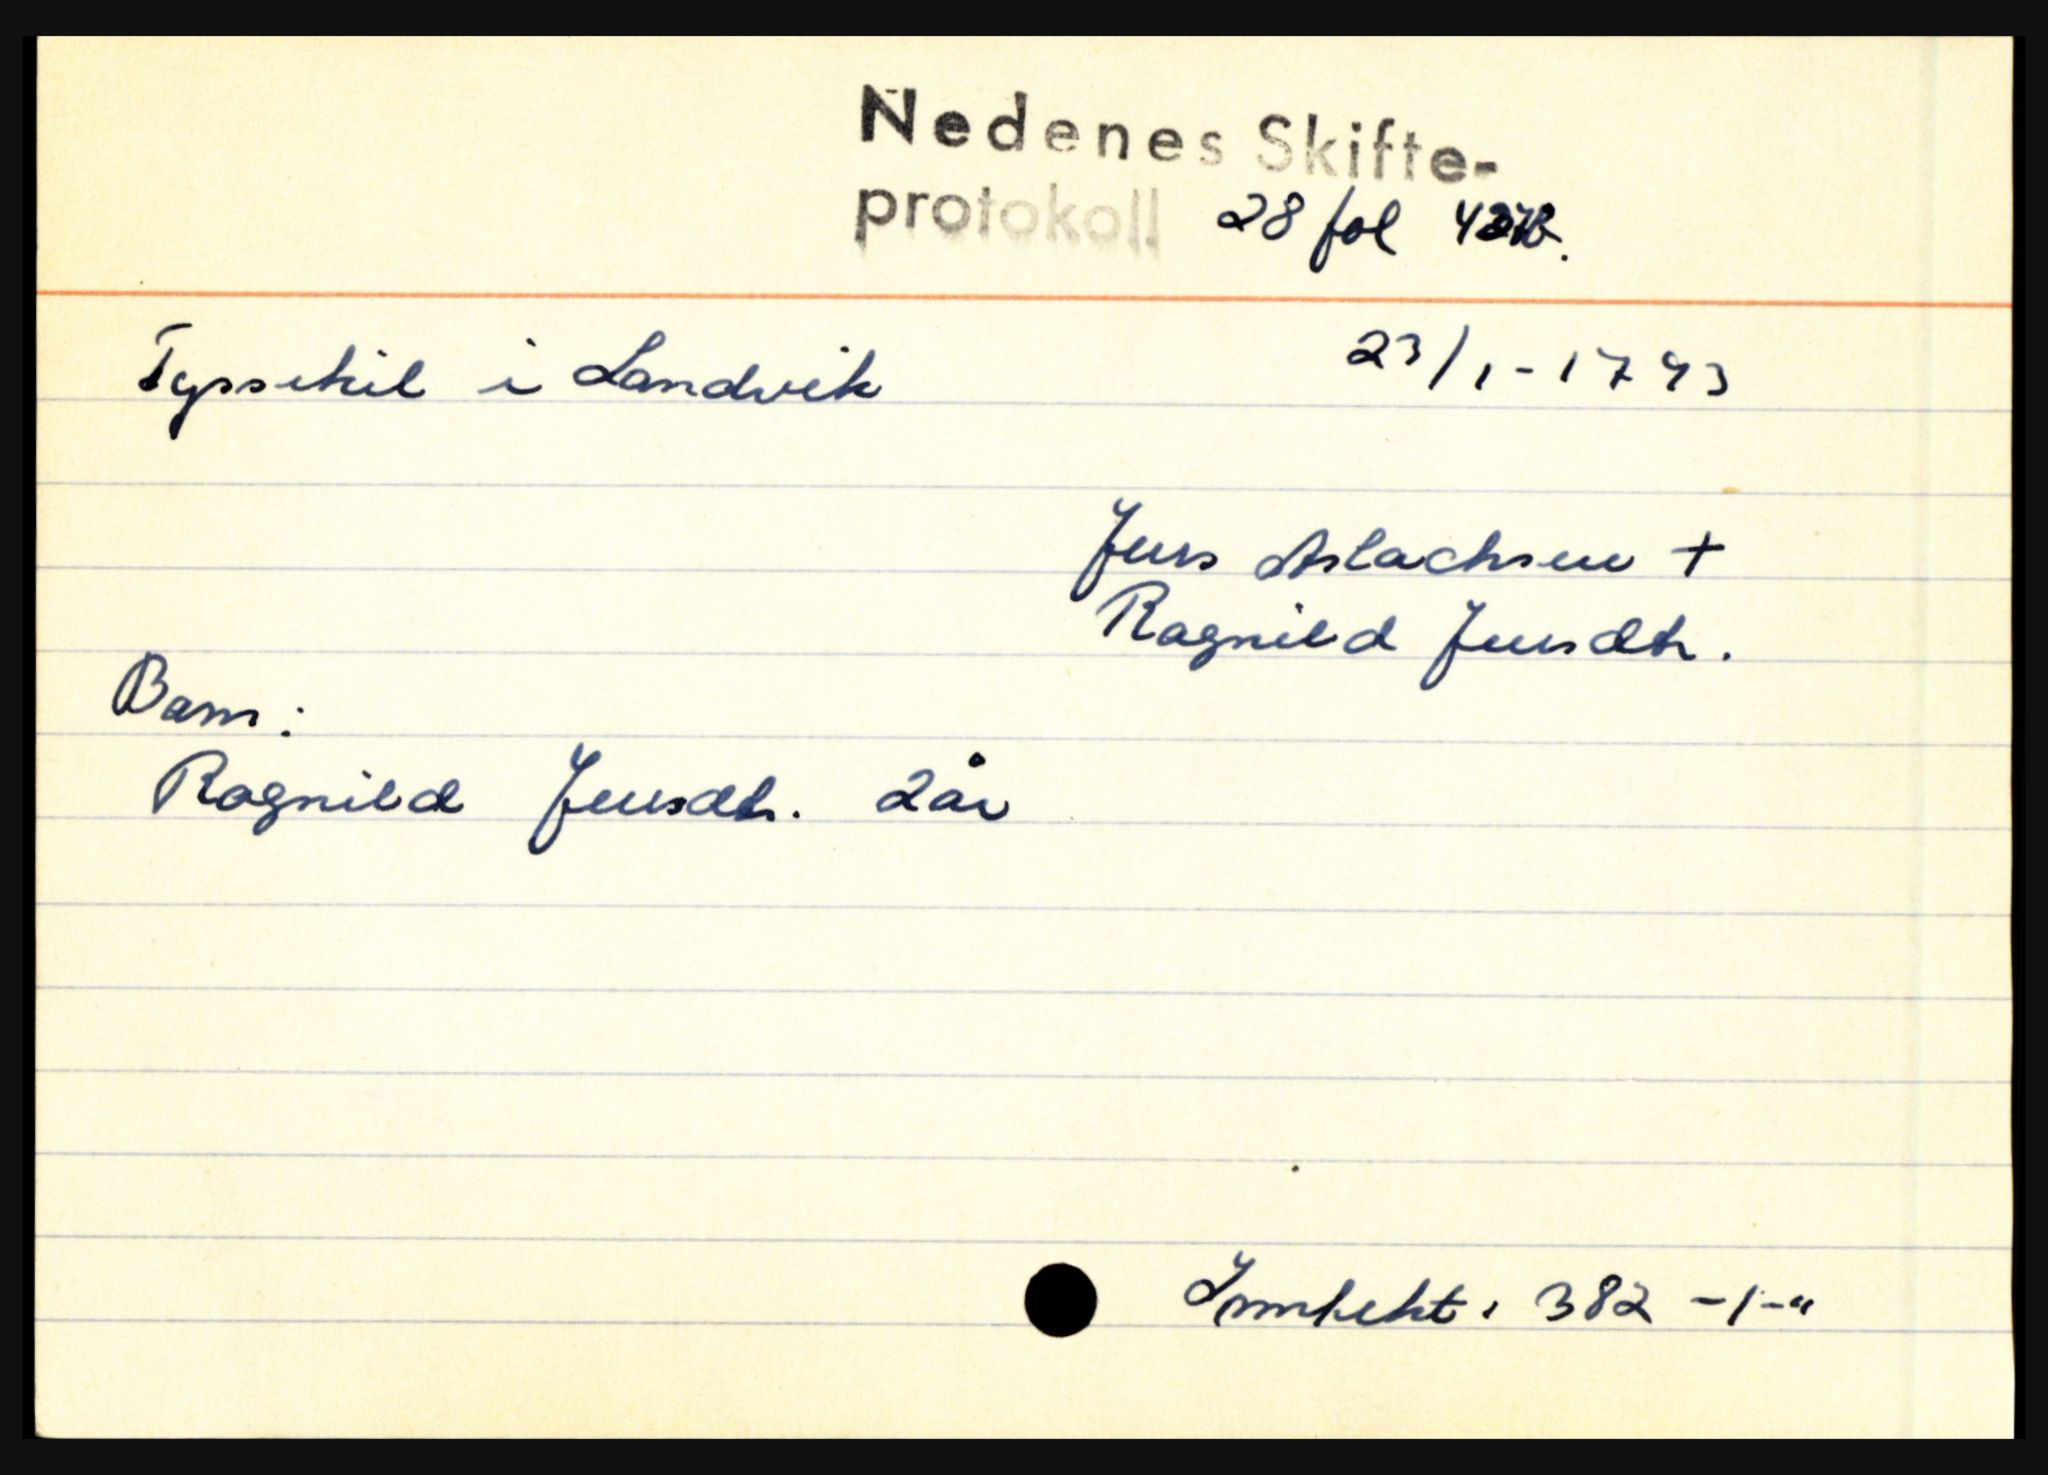 Nedenes Skifte-
protokoll 28 fol
Tyssekil i Landvik 23/1-1793
Jens Aslachsen +
Ragnild Jensdtr.
Barn:
Ragnild Jensdtr. 2 år
382 -1-"